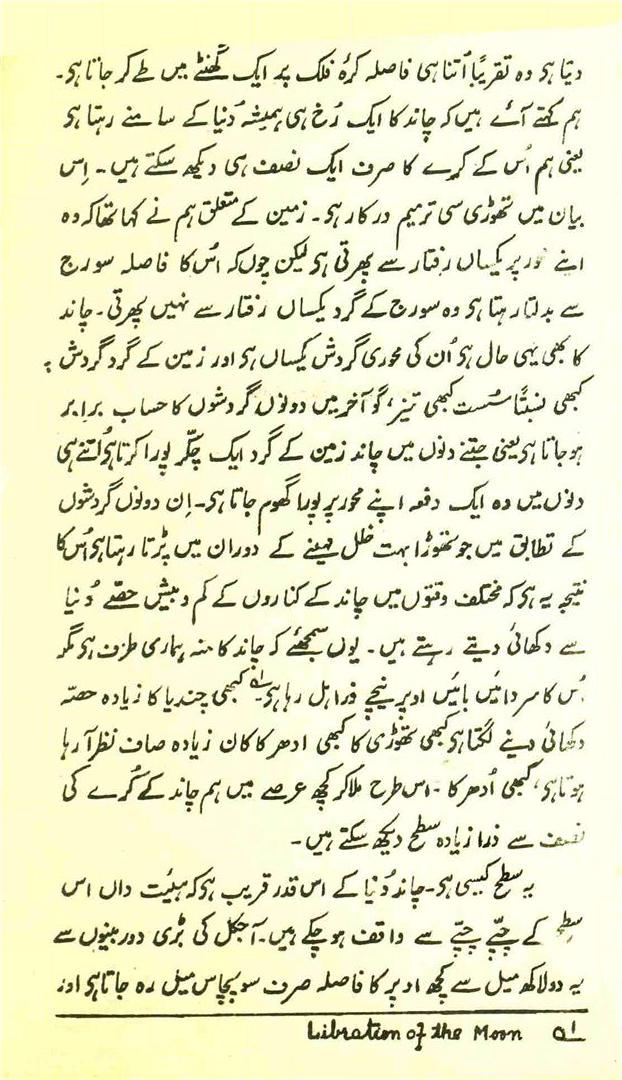 دیتا ہی وہ تقریباً اُتنا ہی فاصلہ کرۂ فلک پر ایک گھنٹے میں طے کر جاتا ہی۔
ہم کہتے آئے ہیں کہ چاند کا ایک رُخ ہی ہمیشہ دُنیا کے سامنے رہتا ہی
یعنی ہم اُس کے کرے کا صرف ایک نصف ہی دیکھ سکتے ہیں۔ اِس
بیان میں تھوڑی سی ترمیم درکار ہی۔ زمین کے متعلق ہم نے کہا تھا کہ وہ
اپنے محور پر یکساں رفتار سے پھرتی ہی لیکن چوں کہ اُس کا فاصلہ سورج
سے بدلتا رہتا ہی وہ سورج کے گرد یکساں رفتار سے نہیں پھرتی۔ چاند
کا بھی یہی حال ہی اُن کی محوری گردش یکساں ہی اور زمین کے گرد گردش
کبھی نسبتاً سُست کبھی تیز، گو آخر میں دونوں گردشوں کا حساب برابر
ہو جاتا ہی یعنی جتنے دنوں میں چاند زمین کے گرد ایک چکّر پورا کرتا ہی اُتنے ہی
دنوں میں وہ ایک دفعہ اپنے محور پر پورا گھوم جاتا ہی۔ اِن دونوں گردشوں
کے تطابق میں جو تھوڑا بہت خلل مہینے کے دوران میں پڑتا رہتا ہی اُس کا
نتیجہ یہ ہی کہ مختلف وقتوں میں چاند کے کناروں کے کم و بیش حصّے دُنیا
سے دکھائی دیتے رہتے ہیں۔ یوں سمجھئے کہ چاند کا منہ ہماری طرف ہی مگر
اُس کا سر دائیں بائیں اوپر نیچے ذرا ہل رہا ہی۔ اھ کبھی چندیا کا زیادہ حصّہ
دکھائی دینے لگتا ہی کبھی تھوڑی کا کبھی ادھر کا کان زیادہ صاف نظر آ رہا
ہوتا ہی، کبھی اُدھر کا۔ اس طرح ملا کر کچھ عرصے میں ہم چاند کے کُرے کی
نصف سے ذرا زیادہ سطح دیکھ سکتے ہیں۔
یہ سطح کیسی ہی۔ چاند دُنیا کے اس قدر قریب ہی کہ ہیئت داں اس
سطح کے چپّے چپّے سے واقف ہو چکے ہیں۔ آجکل کی بڑی دوربینوں سے
یہ دو لاکھ میل سے کچھ اوپر کا فاصلہ صرف سو پچاس میل رہ جاتا ہی اور
اھ Libration of the Moon